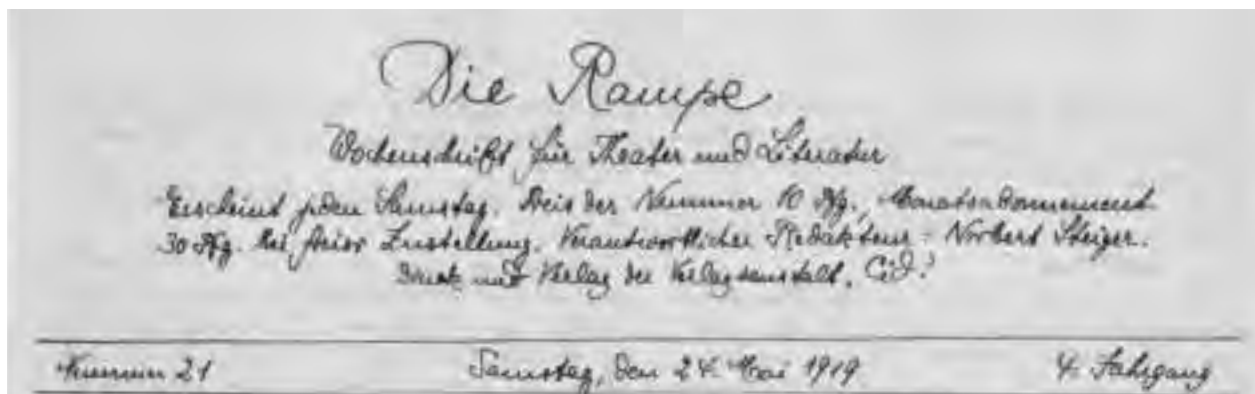 Die Rampe
Wochenschrift für Theater und Literatur
Erscheint jeden Samstag. Preis der Nummer 10 Pfg., Monatsabonnement
30 Pfg. bei freier Zustellung. Verantwortlicher Redakteur: Norbert Steiger.
Druck und Verlag der Verlagsanstalt „Cid“.
Nummer 21 Samstag, den 24. Mai 1919 4. Jahrgang